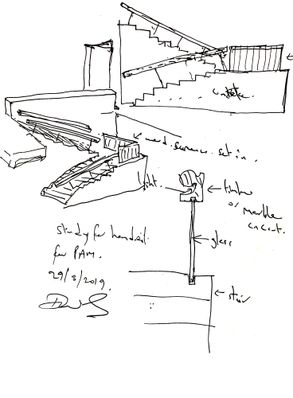 concrete.
wood. screen. set in.
light.
timber
or marble
in cont.
glass
study for handrail
for PAM.
29/3/2019.
stair